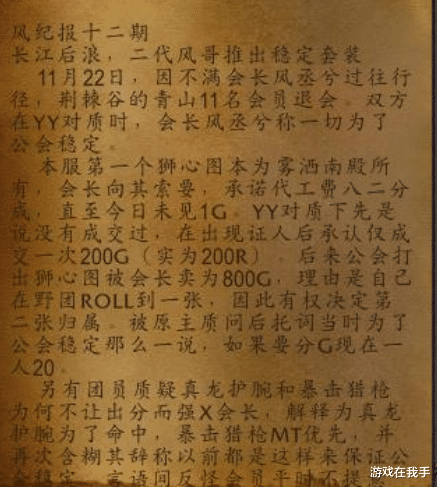 风纪报十二期
长江后浪，二代风哥推出稳定套装
11月22日，因不满会长风丞兮过往行
径，荆棘谷的青山11名会员退会。双方
在YY对质时，会长风丞兮称一切为了
公会稳定。
本服第一个狮心图本为雾洒南殿所
有，会长向其索要，承诺代工费八二分
成，直至今日未见1G。YY对质下先是
说没有成交过，在出现证人后承认仅成
交一次200G（实为200R）。后来公会打
出狮心图被会长卖为800G，理由是自己
在野团ROLL到一张，因此有权决定第
二张归属。被原主质问后托词当时为了
公会稳定那么一说，如果要分G现在一
人20。
另有团员质疑真龙护腕和暴击猎枪
为何不让出分而强X会长，解释为真龙
护腕为了命中，暴击猎枪MT优先，并
再次含糊其辞称以前都是这样来保证公
会稳定，言语间反怪会员平时不提
游戏在我手